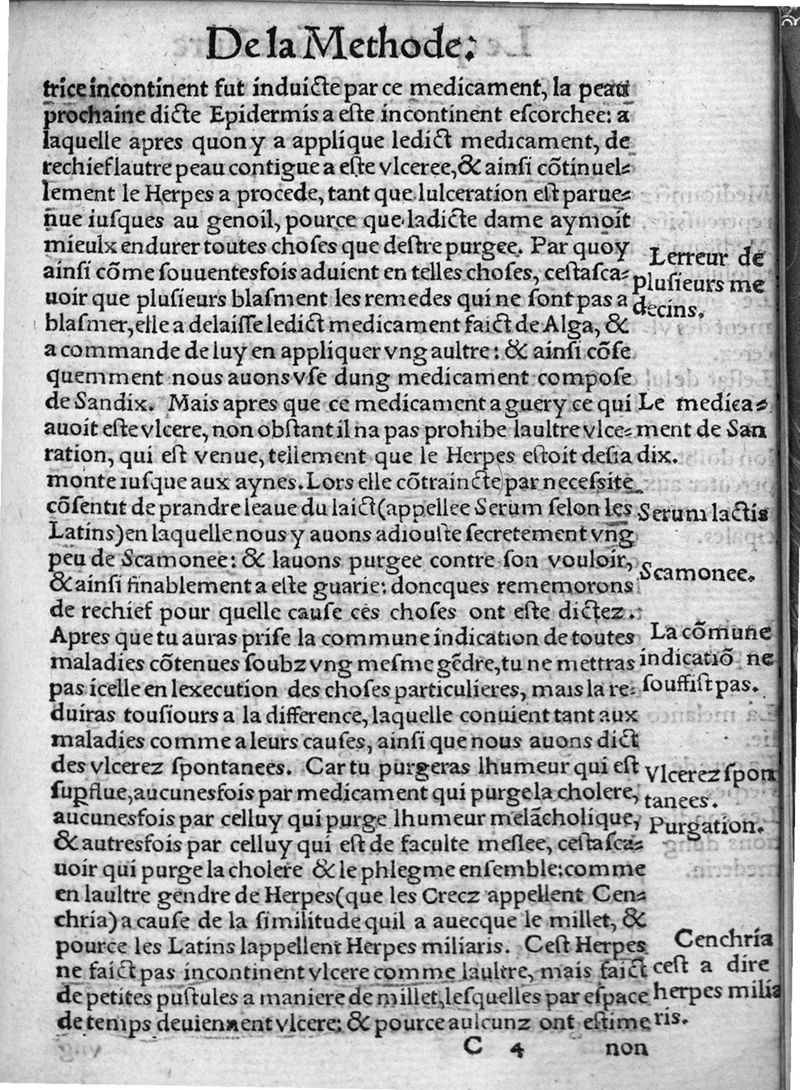 De la Methode:
trice incontinent fut induicte par ce medicament, la peau
prochaine dicte Epidermis a este incontinent eſcorchee: a
laquelle apres quon y a applique ledict medicament, de
rechief lautre peau contigue a eſte vlceree, & ainſi cõtinuel⸗
lement le Herpes a procede, tant que lulceration eſt parue⸗
nue iuſques au genoil, pource que ladicte dame aymoit
mieulx endurer toutes choſes que deſtre purgee. Par quoy
ainſi cõme ſouuentesfois aduient en telles choſes, ceſtaſca⸗
uoir que pluſieurs blaſment les remedes qui ne ſont pas a
blaſmer, elle a delaiſſe ledict medicament faict de Alga, &
a commande de luy en appliquer vng aultre: & ainſi cõſe
quemment nous auons vſe dung medicament compoſe
de Sandix. Mais apres que ce medicament a guery ce qui
auoit eſte vlcere, non obſtant il na pas prohibe laultre vlce⸗
ration, qui eſt venue, tellement que le Herpes eſtoit deſia
monte iuſque aux aynes. Lors elle cõtraincte par neceſsite
cõſentit de prandre leaue du laict (appellee Serum ſelon les
Latins) en laquelle nous y auons adiouſte ſecretement vng
peu de Scamonee: & lauons purgee contre ſon vouloir,
& ainſi finablement a eſte guarie: doncques rememorons
de rechief pour quelle cauſe ces choſes ont eſte dictez.
Apres que tu auras priſe la commune indication de toutes
maladies cõtenues ſoubz vng meſme gẽdre, tu ne mettras
pas icelle en lexecution des choſes particulieres, mais la re⸗
duiras touſiours a la difference, laquelle conuient tant aux
maladies comme a leurs cauſes, ainſi que nous auons dict
des vlcerez ſpontanees. Car tu purgeras lhumeur qui eſt
ſuꝑflue, aucunesfois par medicament qui purge la cholere,
aucunesfois par celluy qui purge lhumeur melãcholique,
& autresfois par celluy qui eſt de faculte meſlee, ceſtaſca⸗
uoir qui purge la cholere & le phlegme enſemble: comme
en laultre gendre de Herpes (que les Grecz appellent Cen⸗
chria) a cauſe de la ſimilitude quil a auecque le millet, &
pource les Latins lappellent Herpes miliaris. Ceſt Herpes
ne faict pas incontinent vlcere comme laultre, mais faict
de petites puſtules a maniere de millet, leſquelles par eſpace
de temps deuiennent vlcere: & pource aulcunz ont eſtime
C 4 non
Lerreur de
pluſieurs me
decins.
Le medica⸗
ment de San
dix.
Serum lactis
Scamonee.
La cõmune
indicatiõ ne
ſouffiſt pas.
Vlcerez ſpon
tanees.
Purgation.
Cenchria
ceſt a dire
herpes milia
ris.